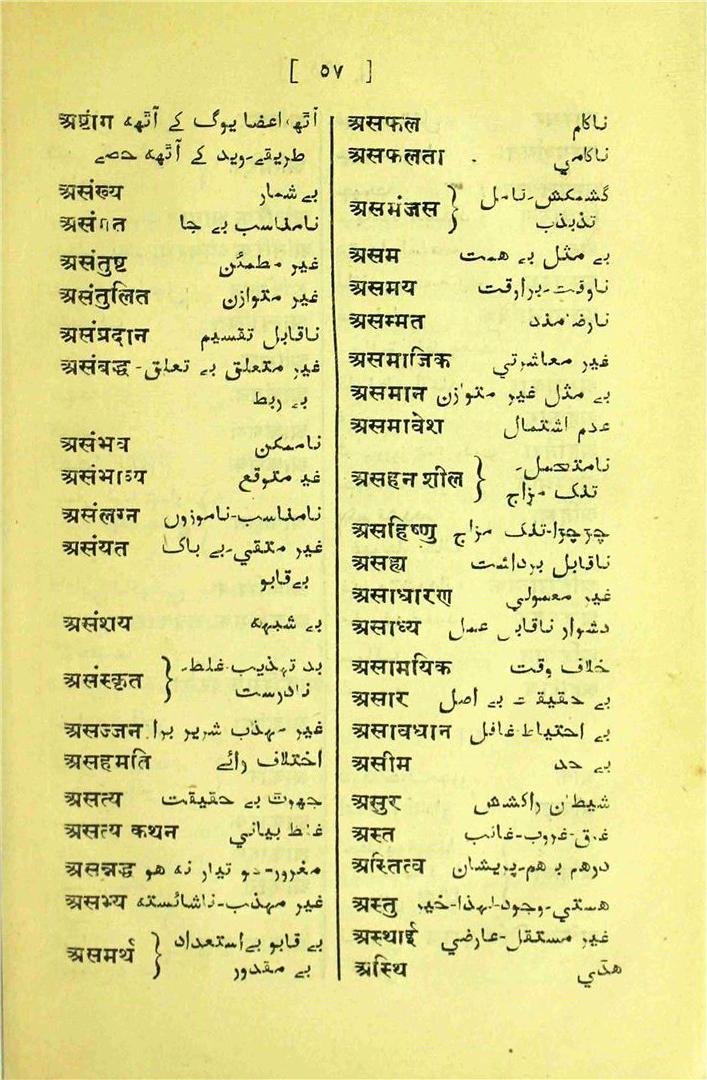 [ ٥٧ ]
अष्टांग آٹھ اعضا یوگ کے آٹھ
طریقے-وید کے آٹھ حصے
असंख्य بے شمار
असंगत نامناسب بے جا
असंतुष्ट غیر مطمئن
असंतुलित غیر متوازن
असंप्रदान ناقابل تقسیم
असंबद्ध غیر متعلق بے تعلق-
بے ربط
असंभव ناممکن
असंभाव्य غیر متوقع
असंलग्न نامناسب-ناموزوں
असंयत غیر متقی-بے باک
بے قابو
असंशय بے شبہہ
असंस्कृत } بد تہذیب-غلط-
نادرست
असज्जन غیر مہذب شریر برا
असहमति اختلاف رائے
असत्य جھوٹ بے حقیقت
असत्य कथन غلط بیانی
असन्नद्ध مغرور-جو تیار نہ ہو
असभ्य غیر مہذب-ناشائستہ
असमर्थ } بے قابو بے استعداد
بے مقدور
असफल ناکام
असफलता ناکامی
असमंजस } کشمکش-تامل
تذبذب
असम بے مثل بے ہمت
असमय ناوقت-برا وقت
असम्मत نارضامند
असमाजिक غیر معاشرتی
असमान بے مثل غیر متوازن
असमावेश عدم اشتمال
असहन शील } نامتحمل-
تنک مزاج
असहिष्णु چڑچڑا-تنک مزاج
असह्य ناقابل برداشت
असाधारण غیر معمولی
असाध्य دشوار ناقابل عمل
असामयिक خلاف وقت
असार بے حقیقت بے اصل
असावधान بے احتیاط-غافل
असीम بے حد
असुर شیطان راکشش
अस्त غرق-غروب-غائب
अस्तित्व درہم برہم-پریشان
अस्तु ہستی-وجود-لہذا-خیر
अस्थाई غیر مستقل-عارضی
अस्थि ہڈی